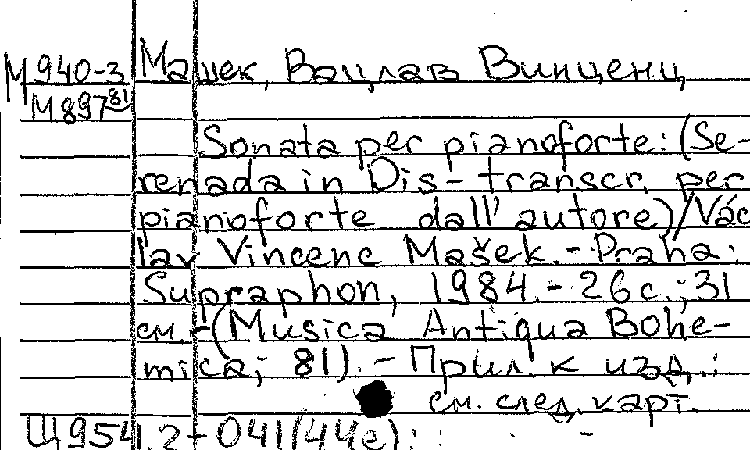 М940-3 Машек, Вацлав Винценц
М897 81
Sonata per pianoforte: (Se-
renada in Dis - transcr. per
pianoforte dall'autore) / Vác
lav Vincenc Mašek. - Praha:
Supraphon, 1984. - 26 с.; 31
см. - (Musica Antiqua Bohe-
mica; 81). - Прил. к изд.:
см. след. карт.
Щ954.2+041(44е):